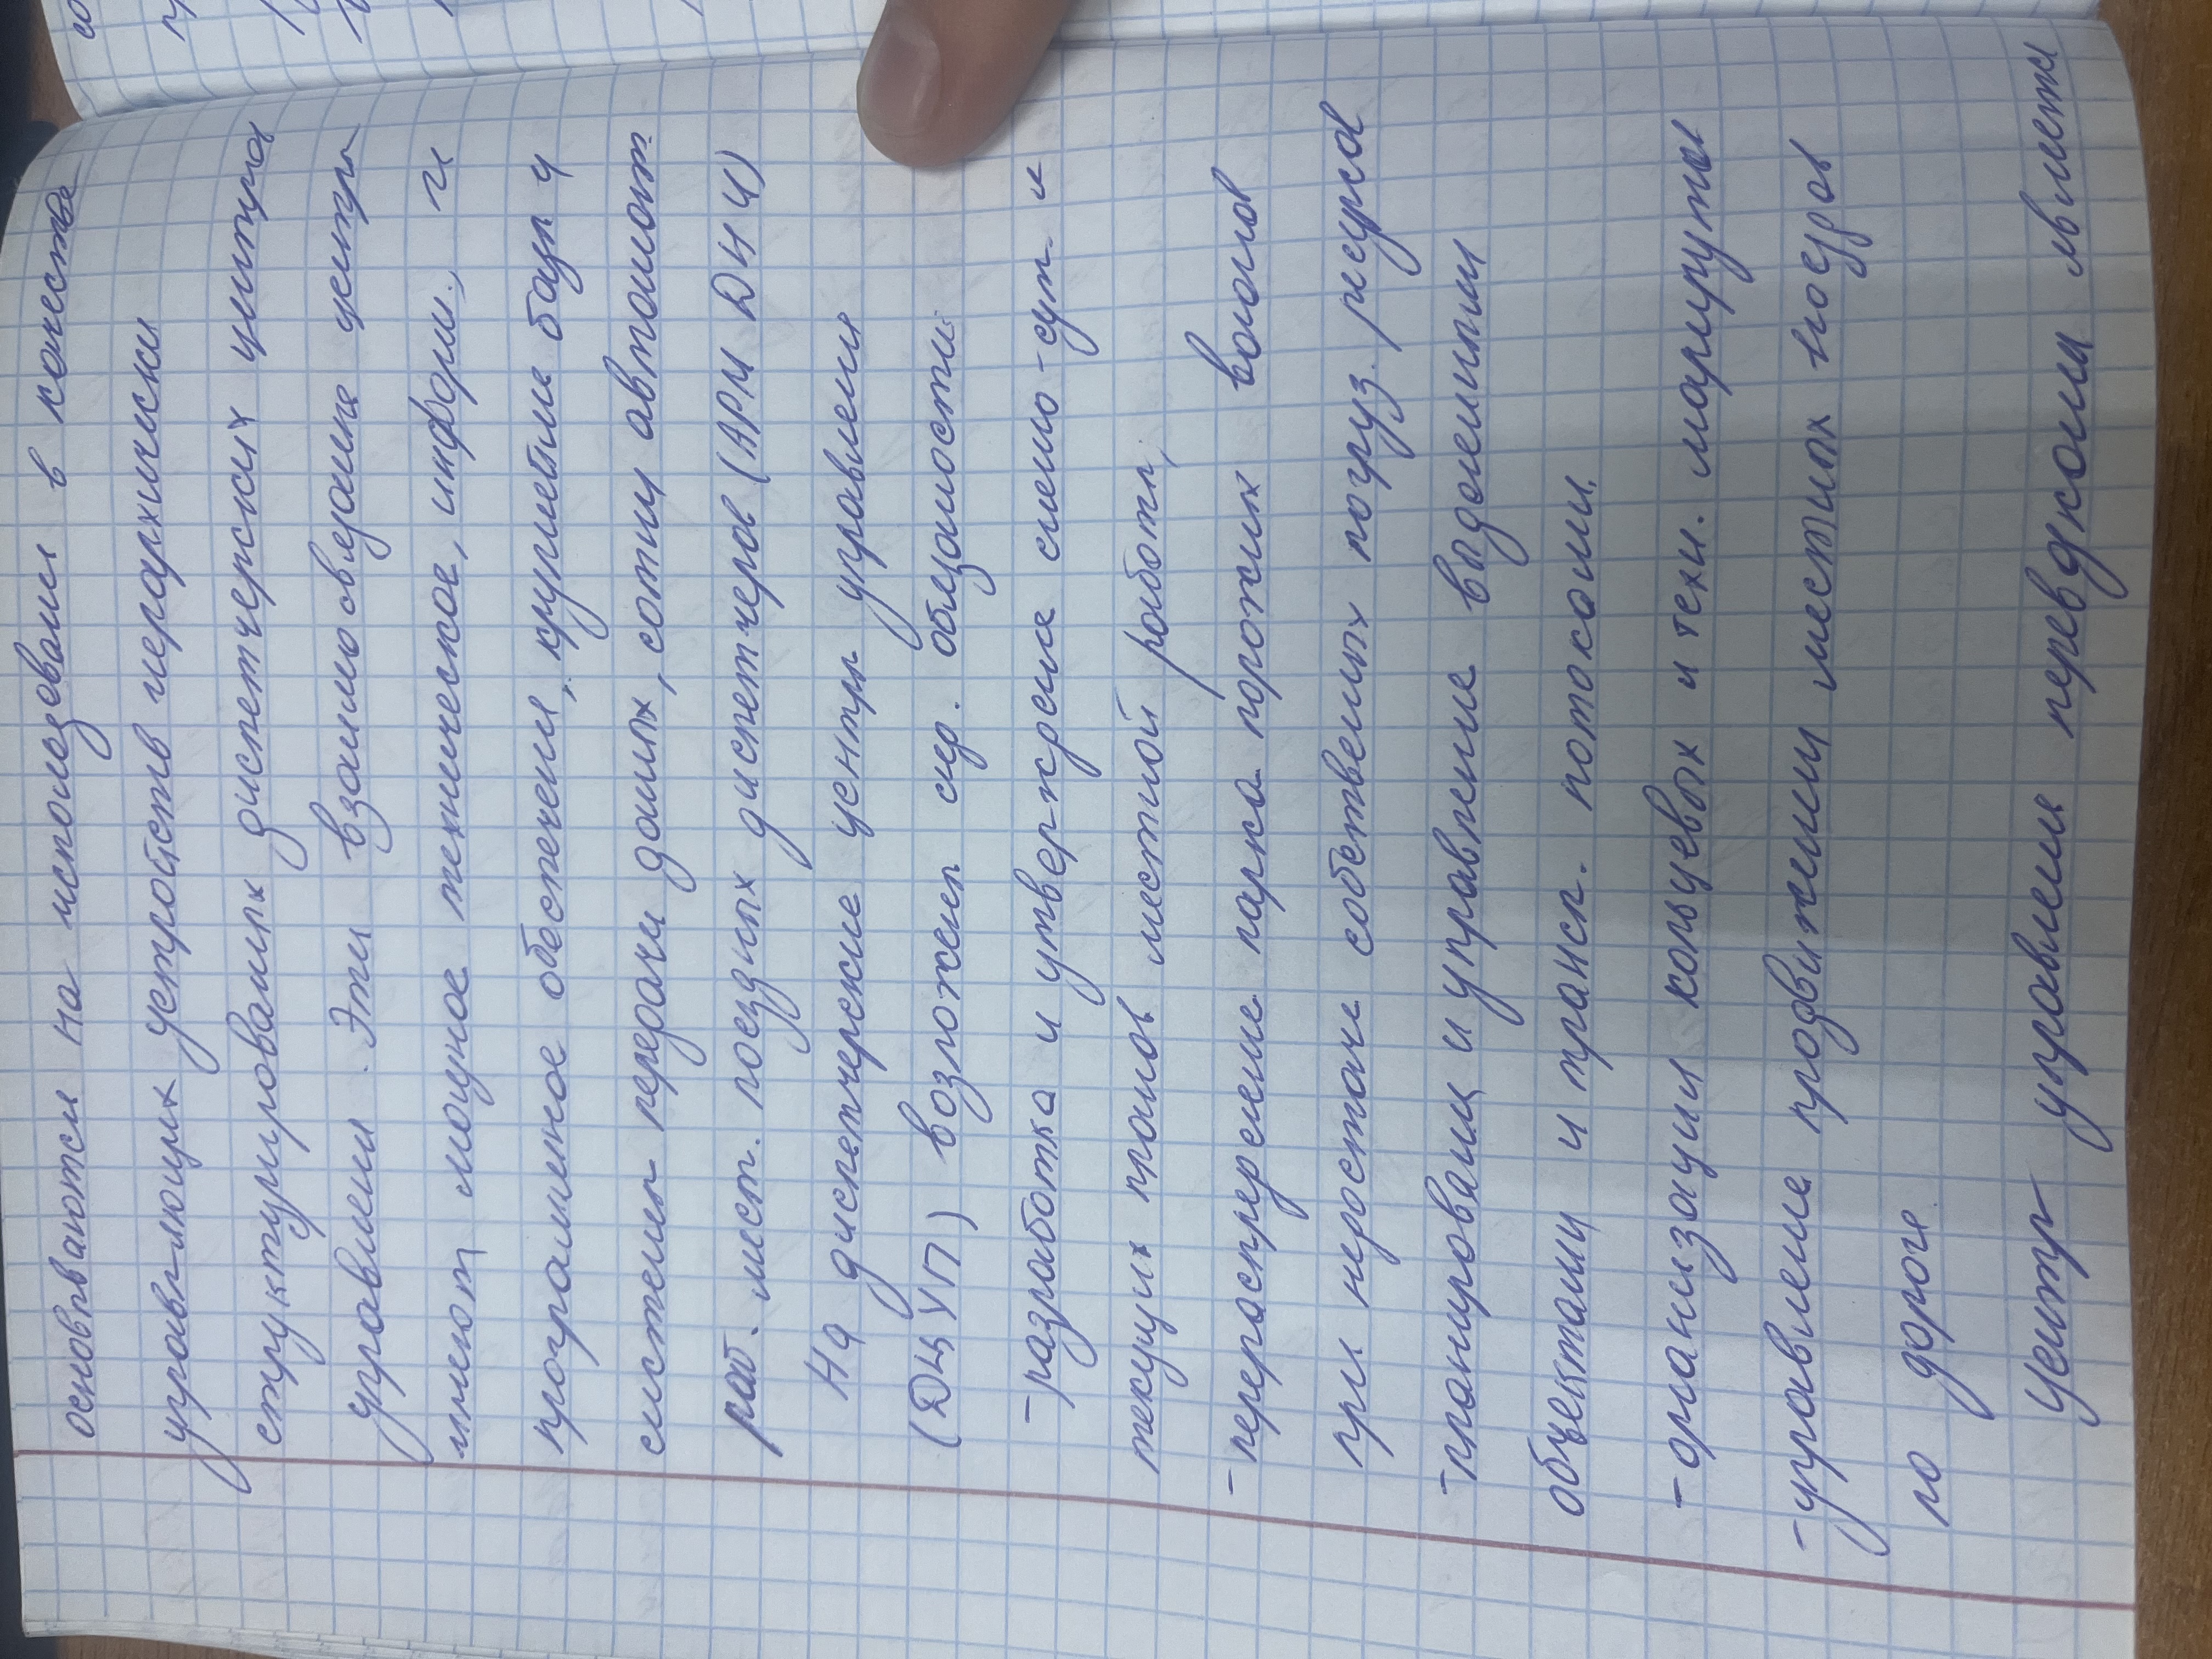 основываются на исползевани в качестве
управляющих устройств иерархически
структурированых диспетчерских цнтров
управлени. Эти взаимосвезаные центры
имеют мощное техническое, информ., и
програмное обеспечени, крупнейшие базы и
системы передачи даных, сотни автомат.
раб. мест. поездных диспетчеров (АРМ ДНЦ)
На диспетчерские центры управления
(ДЦУП) возложены сле. обязаности:
- разработка и утверждение смено-сут и
текущих планов местной работы,
- перераспределение парка порожих вагонов
при недостаче собственых погруз. ресурсов
- планировани и управление выделенными
объектами и трансп. потоками.
- организации кольцевых и техн. маршруты
- управление продвижени местных поездов
по дороге
Центр управлени перевозками являетя